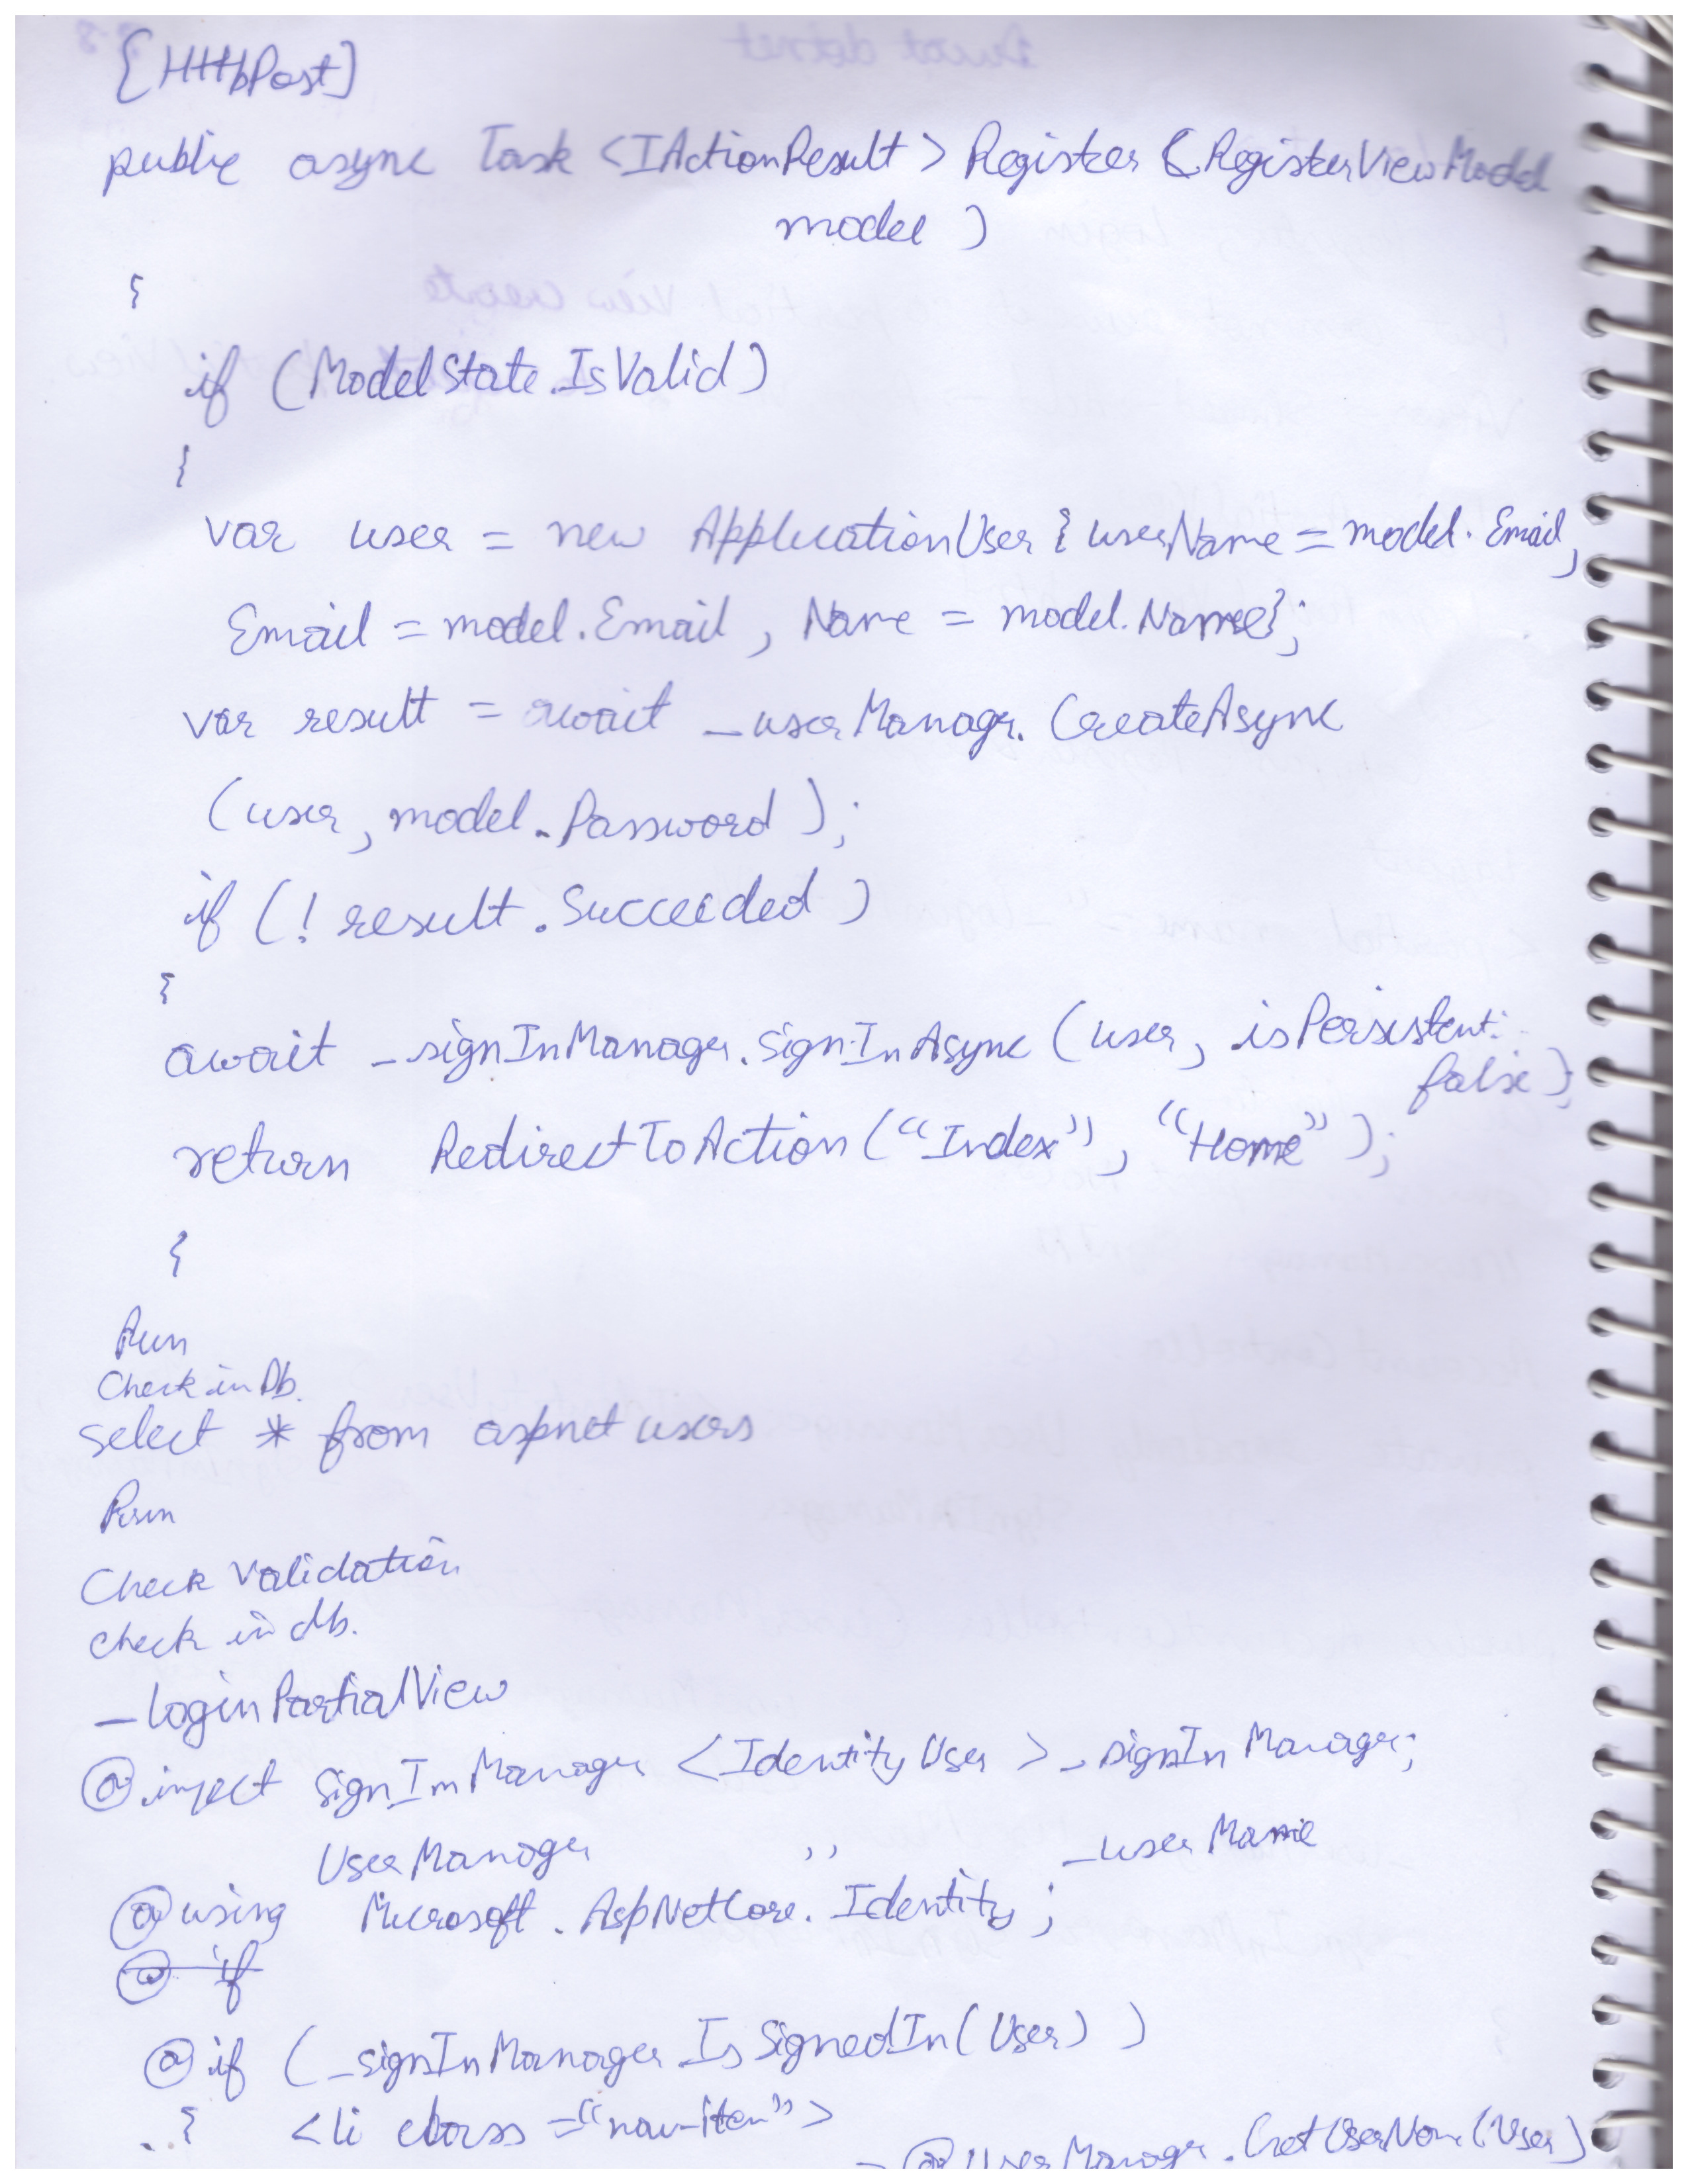 [HttpPost]
public async Task <IActionResult> Register (RegisterViewModel
model )
{
if (ModelState.IsValid)
{
var user = new ApplicationUser { userName = model.Email,
Email = model.Email, Name = model.Name};
var result = await _userManagr.CreateAsync
(user, model.Password);
if (! result.Succeeded )
{
await _signInManager.SignInAsync (user, isPersistent:
false);
return RedirectToAction ("Index", "Home");
{
Run
Check in Db.
select * from aspnetusers
Run
Check Validation
check in db.
_loginPartialView
@inject SignInManager <IdentityUser> _signInManager;
UserManager ,, _userName
@using Microsoft.AspNetCore.Identity;
@ if
@if (_signInManager.IsSignedIn(User))
{ <li class="nav-item">
@UserManager.GetUserName(User)